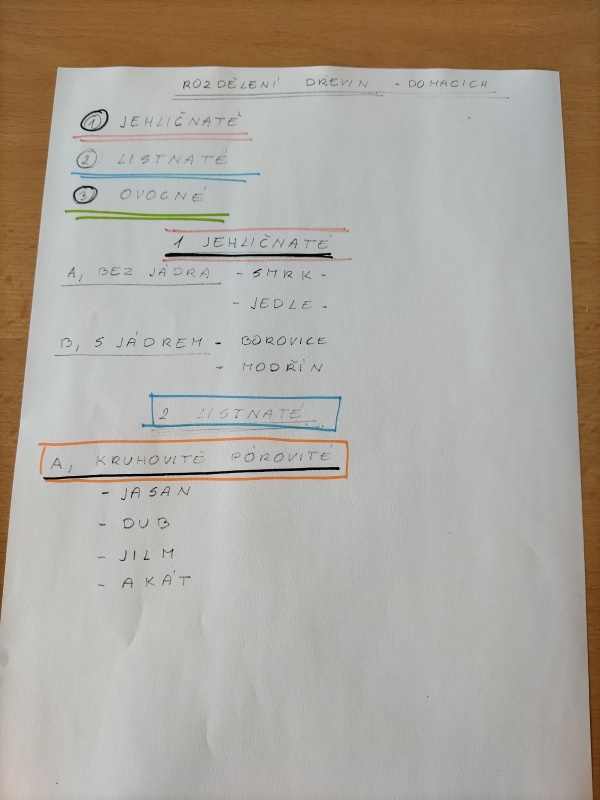 ROZDĚLENÍ DŘEVIN - DOMACICH
1 JEHLIČNATÉ
2 LISTNATÉ
3 OVOCNÉ
1 JEHLIČNATÉ
A, BEZ JÁDRA - SMRK -
- JEDLE -
B, S JÁDREM - BOROVICE
- MODŘÍN
2 LISTNATÉ
A, KRUHOVITĚ PÓROVITÉ
- JASAN
- DUB
- JILM
- AKÁT